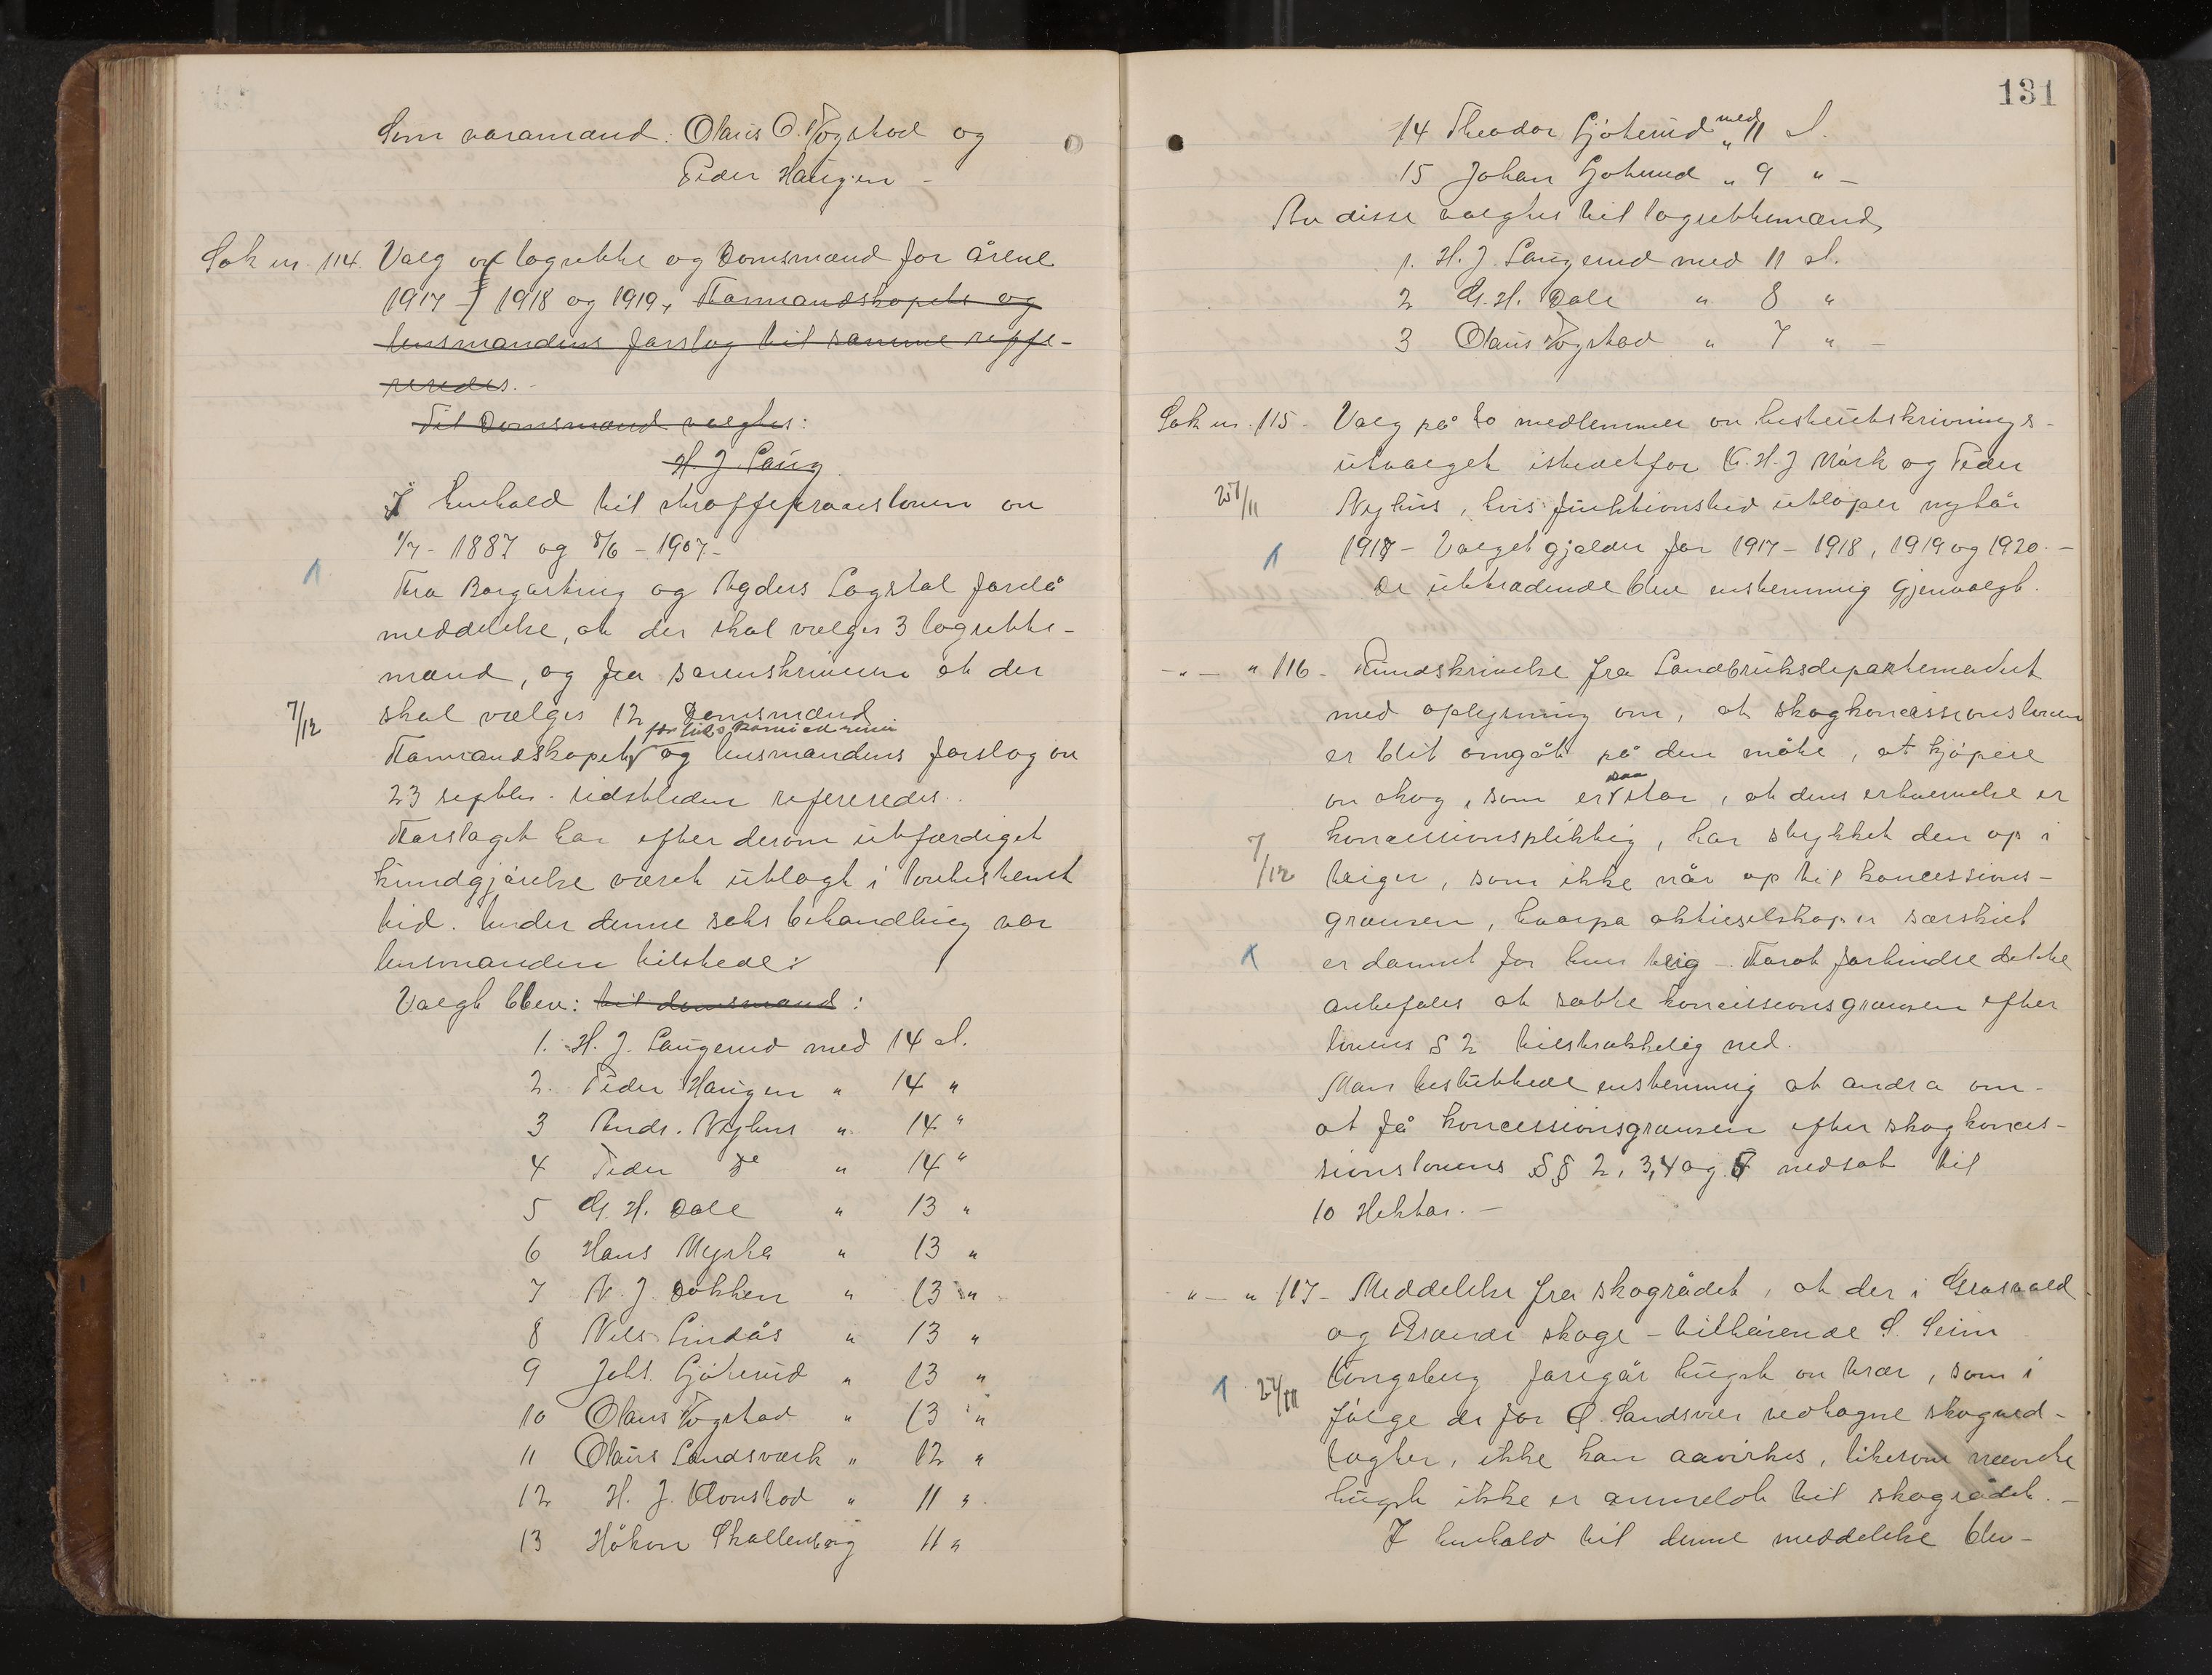 Som varamænd: Olaus O. Vogstad og
Peder Haugen -
Sak nr. 114. Valg av lagrette og Domsmænd for årene
1917 - 1918 og 1919, Formandskapets og
lensmandens forslag til samme reffe-
reredes. -
Til Domsmænd valgtes:
H. J. Laug
I henhold til straffeprocesloven av
1/7 - 1887 og 8/6 - 1907 -
1
Fra Borgarting og Agders Lagstol forelå
meddelelse, at der skal vælges 3 lagrette-
mænd, og fra sorenskriveren at der
7/12
skal vælges 12 Domsmænd
Formandskapets og lensmandens forslag av
23 septbr. sidstleden refereredes.
Forslaget har efter derom utfærdiget
kundgjørelse været utlagt i lovbestemt
tid. Under denne saks behandling var
lensmanden tilstede:
Valgt blev: til domsmænd:
1. H. J. Laugerud med 14 st.
2. Peder Haugen " 14 "
3 Andr. Nyhus " 14 "
4 Peder do " 14 "
5 G. H. Dale " 13 "
6 Hans Myrha " 13 "
7 N. J. Dokken " 13 "
8 Nils Lindås " 13 "
9 Johs. Gjøterud " 13 "
10 Olaus Vogstad " 13 "
11 Olaus Landsværk " 12 "
12 H. J. Klonstad " 11 "
13 Håkon Skallenberg 11 "
131
14 Theodor Gjøterud med " 11 st.
15 Johan Gjøterud " 9 " -
Av disse valgtes til lagrettemænd,
1. H. J. Laugerud med 11 st.
2 G. H. Dale " 8 "
3 Olaus Vogstad " 7 " -
Sak nr. 115 - Valg på to medlemmer av hesteutskrivnings-
utvalget istedetfor K. H. J. Mørk og Peder
27/11
Nyhus, hvis funktionstid utløper nytår
1
1917 - Valget gjælder for 1917 - 1918, 1919 og 1920. -
De uttrædende blev enstemmig gjenvalgt.
- " - " 116 - Rundskrivelse fra Landbruksdepartementet
med oplysning om, at skogkoncessionsloven
er blit omgåt på den måte, at kjøpere
saa
av skog, som er stor, at dens erhvervelse er
7/12
koncessionspliktig, har stykket den op i
teiger, som ikke når op til koncessions-
grænsen, hvorpå aktieselskaper særskilt
1
er dannet for hver teig - For at forhindre dette
anbefales at sætte koncessionsgrænsen efter
lovens § 2 tilstrækkelig ned.
Man besluttede enstemmig at andra om -
at få koncessionsgrænsen efter skogkonces-
sionslovens §§ 2, 3, 4 og 8 nedsat til
10 Hektar. -
" - " 117 - Meddelelse fra skogrådet, at der i
og skoge - tilhørende S. Seim
1 27/11
Kongsberg foregår hugst av trær, som i
følge de for Ø. Sandsvær vedtagne skogved-
tægter, ikke kan aavirkes, likesom nævnte
hugst ikke er anmeldt til skogrådet. -
I henhold til denne meddelelse blev -